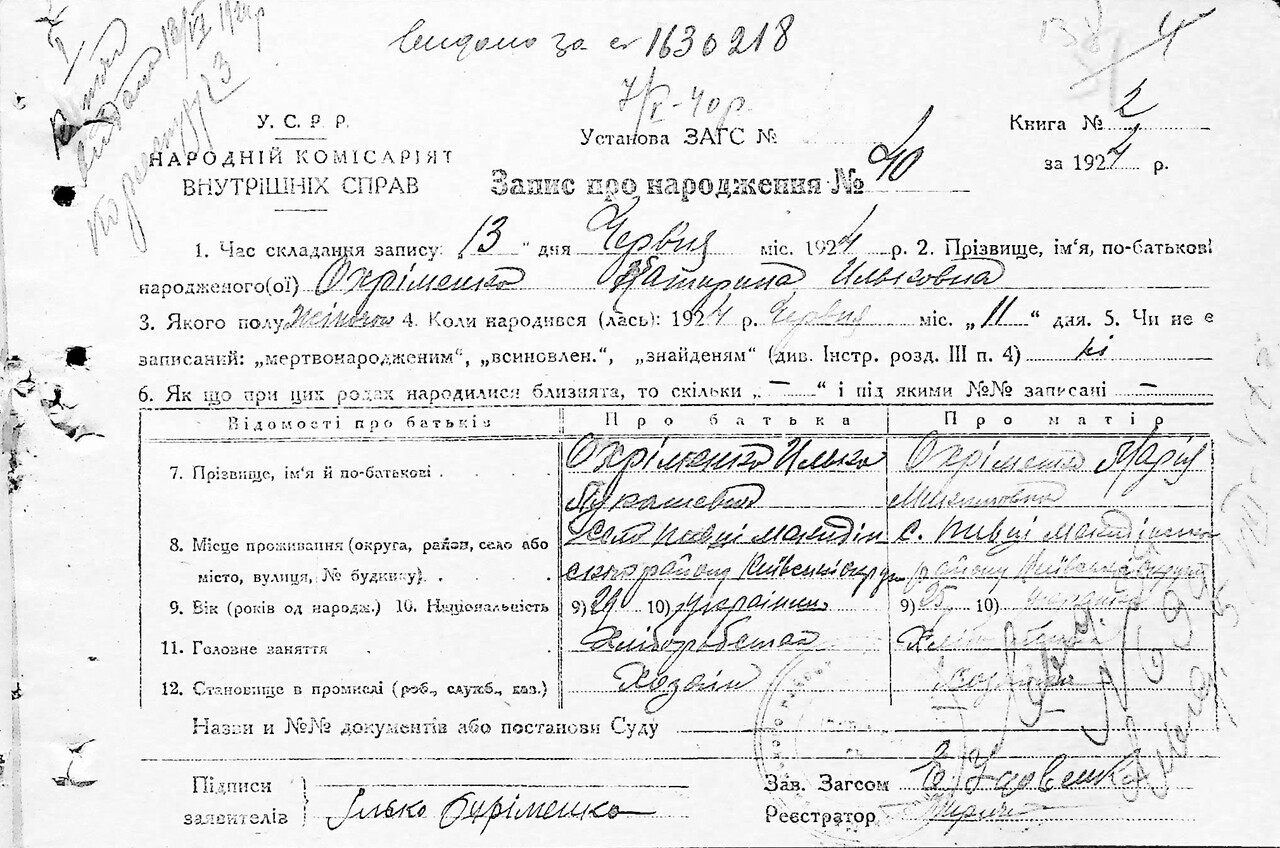 Видано за № 1630218
7/V-40р.
У. С. Р. Р.
НАРОДНІЙ КОМІСАРІЯТ
ВНУТРІШНІХ СПРАВ
Установа ЗАГС №
Книга № 2
за 1924 р.
Запис про народження № 40
1. Час складання запису: 13 " дня Червня міс. 1924 р. 2. Прізвище, ім'я, по-батькові
народженого(ої) Охріменко Катирина Ильковна
3. Якого полу Жіночого 4. Коли народився (лась): 1924 р. Червня міс. „ 11 “ дня. 5. Чи не є
записаний: „мертвонародженим“, „всиновлен.“, „знайденям“ (див. Інстр. розд. III п. 4) ні
6. Як що при цих родах народилися близнята, то скільки „ — “ і під якими №№ записані —
Відомості про батьків Про батька Про матір
7. Прізвище, ім'я й по-батькові Охріменко Илько Охріменко Марія
Лукашевич
8. Місце проживання (округа, район, село або Село Півці с. Півці
місто, вулиця, № будинку) району Київської округи району Київської округи
9. Вік (років од народж.) 10. Національність 9) 29 10) українец 9) 25 10) українка
11. Головне заняття Хлиборобство
12. Становище в промислі (роб., служб., хаз.) Хозаін
Назви и №№ документів або постанови Суду
Підписи
заявителів Илько Охріменко
Зав. Загсом Удовенко
Реєстратор